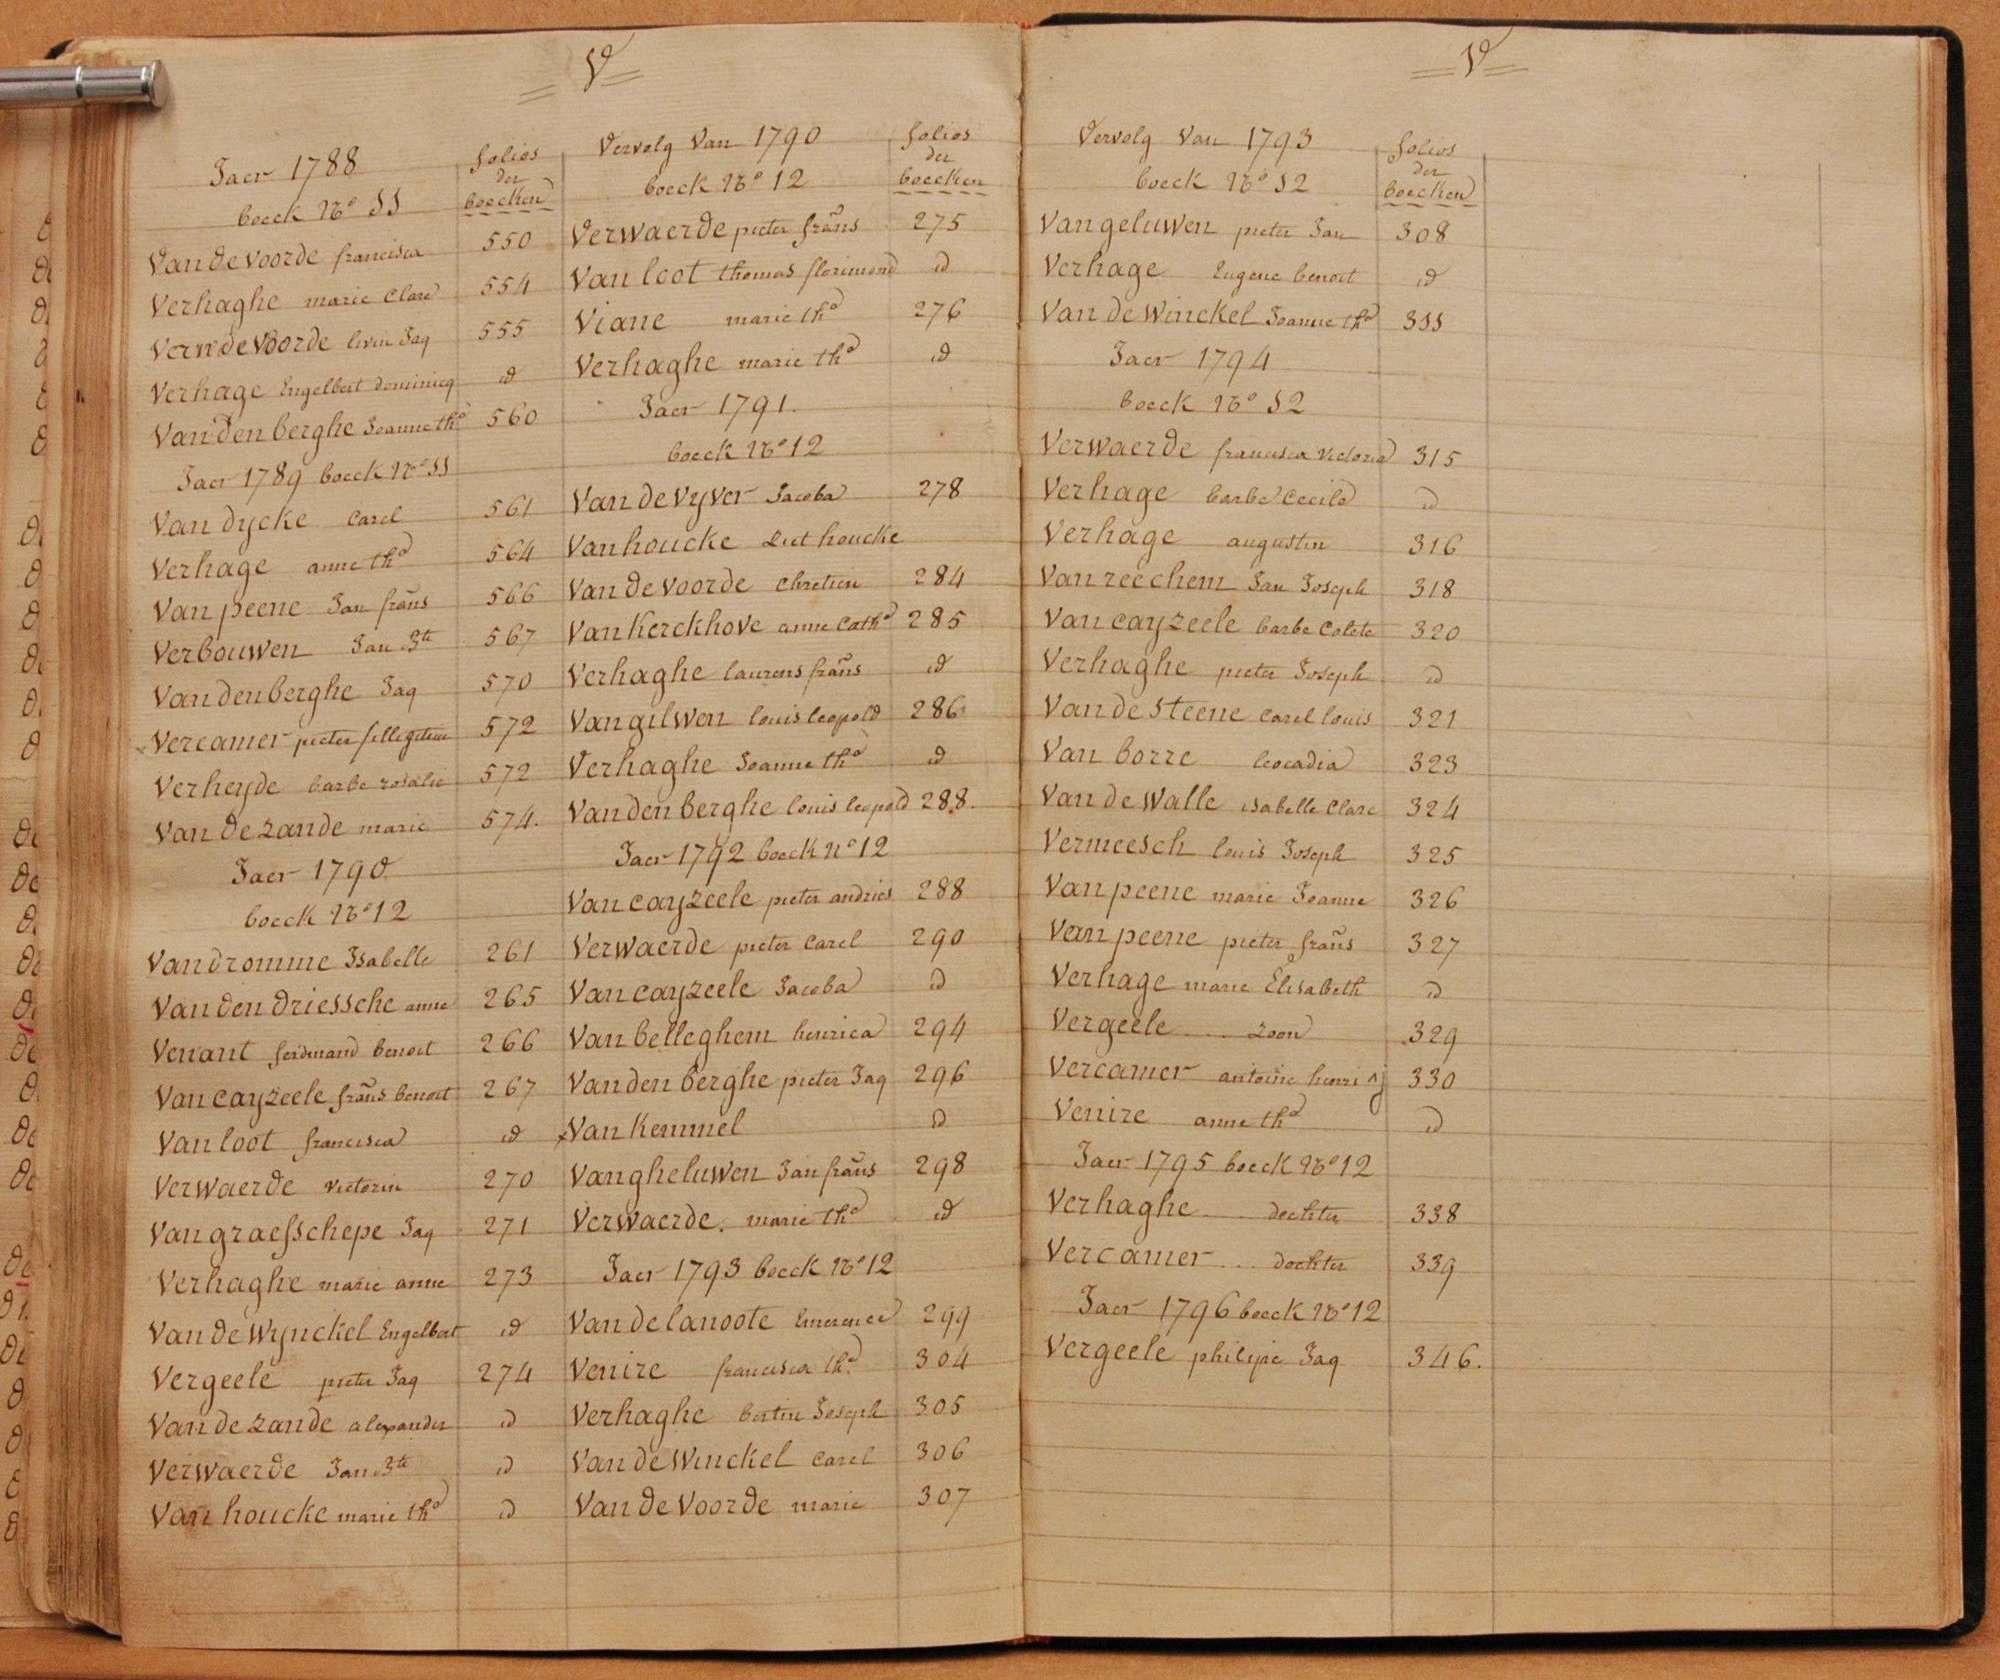 V
Jaer 1788
boeck No 11
folios
der
boecken
Vandevoorde francisca 550
Verhaghe marie Clare 554
Vernde Voorde livin Jaq 555
Verhage Engelbert dominicq id
Vandenberghe Joanne tha 560
Jaer 1789 boeck No 11
Van dycke Carel 561
Verhage anne tha 564
Van peene Jan frãns 566
Verbouwen Jan Bte 567
Vandenberghe Jaq 570
Vercamer pieter 572
Verheyde barbe rosalie 572
Van de zande marie 574.
Jaer 1790
boeck No 12
Vandromme Isabelle 261
Vanden driessche anne 265
Venant ferdinand benoit 266
Van cayzeele frãns benoit 267
Van loot francisca id
Verwaerde Victorin 270
Van graefschepe Jaq 271
Verhaghe marie anne 273
Van de Wynckel Engelbert id
Vergeele pieter Jaq 274
Van de zande alexander id
Verwaerde Jan Bte id
Van houcke marie tha id
Vervolg Van 1790
boeck No 12
folios
der
boecken
Verwaerde pieter frãns 275
Van loot thomas florimond id
Viane marie tha 276
Verhaghe marie tha id
Jaer 1791.
boeck No 12
Van de Vyver Jacoba 278
Vanhoucke ziet houcke
Van de Voorde Chretien 284
Van Kerckhove anne Catha 285
Verhaghe laurens frãns id
Van gilwen louis leopold 286
Verhaghe Joanne tha id
Vanden berghe louis leopold 288.
Jaer 1792 boeck No 12
Van cayzeele pieter andries 288
Verwaerde pieter Carel 290
Van cayzeele Jacoba id
Van belleghem henrica 294
Vanden berghe pieter Jaq 296
Van Kemmel id
Van gheluwen Jan frãns 298
Verwaerde. marie tha id
Jaer 1793 boeck No 12
Van de lanoote Emerence 299
Venire francisca tha 304
Verhaghe bertin Joseph 305
Van de Winckel Carel 306
Van de Voorde marie 307
V
Vervolg Van 1793
boeck No 12
folios
der
boecken
Van geluwen pieter Jan 308
Verhage Eugene benoit id
Van de Winckel Joanne tha 311
Jaer 1794
boeck No 12
Verwaerde francisca Victoria 315
Verhage barbe Cecile id
Verhage augustin 316
Van reechem Jan Joseph 318
Van cayzeele barbe Colete 320
Verhaghe pieter Joseph id
Van de Steene Carel louis 321
Van borre leocadia 323
Van de Walle isabelle Clare 324
Vermeesch louis Joseph 325
Van peene marie Joanne 326
Van peene pieter frãns 327
Verhage marie Elisabeth id
Vergeele ... zoon 329
Vercamer antoine henri 330
Venire anne tha id
Jaer 1795 boeck No 12
Verhaghe ... dochter 338
Vercamer ... dochter 339
Jaer 1796 boeck No 12
Vergeele philipe Jaq 346.